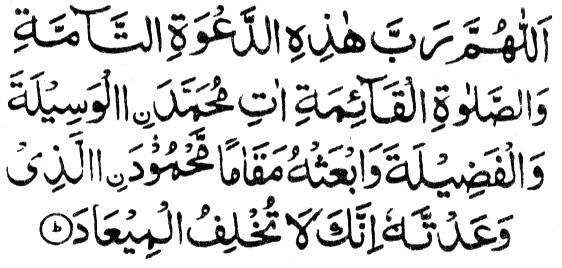 اَللّٰهُمَّ رَبَّ هٰذِهِ الدَّعْوَةِ التَّآمَّةِ
وَالصَّلٰوةِ الْقَآئِمَةِ اٰتِ مُحَمَّدَنِ االْوَسِيْلَةَ
وَالْفَضِيْلَةَ وَابْعَثْهُ مَقَامًا مَّحْمُوْدَنِ االَّذِىْ
وَعَدْتَّهٗ اِنَّكَ لَا تُخْلِفُ الْمِيْعَادَ ؕ